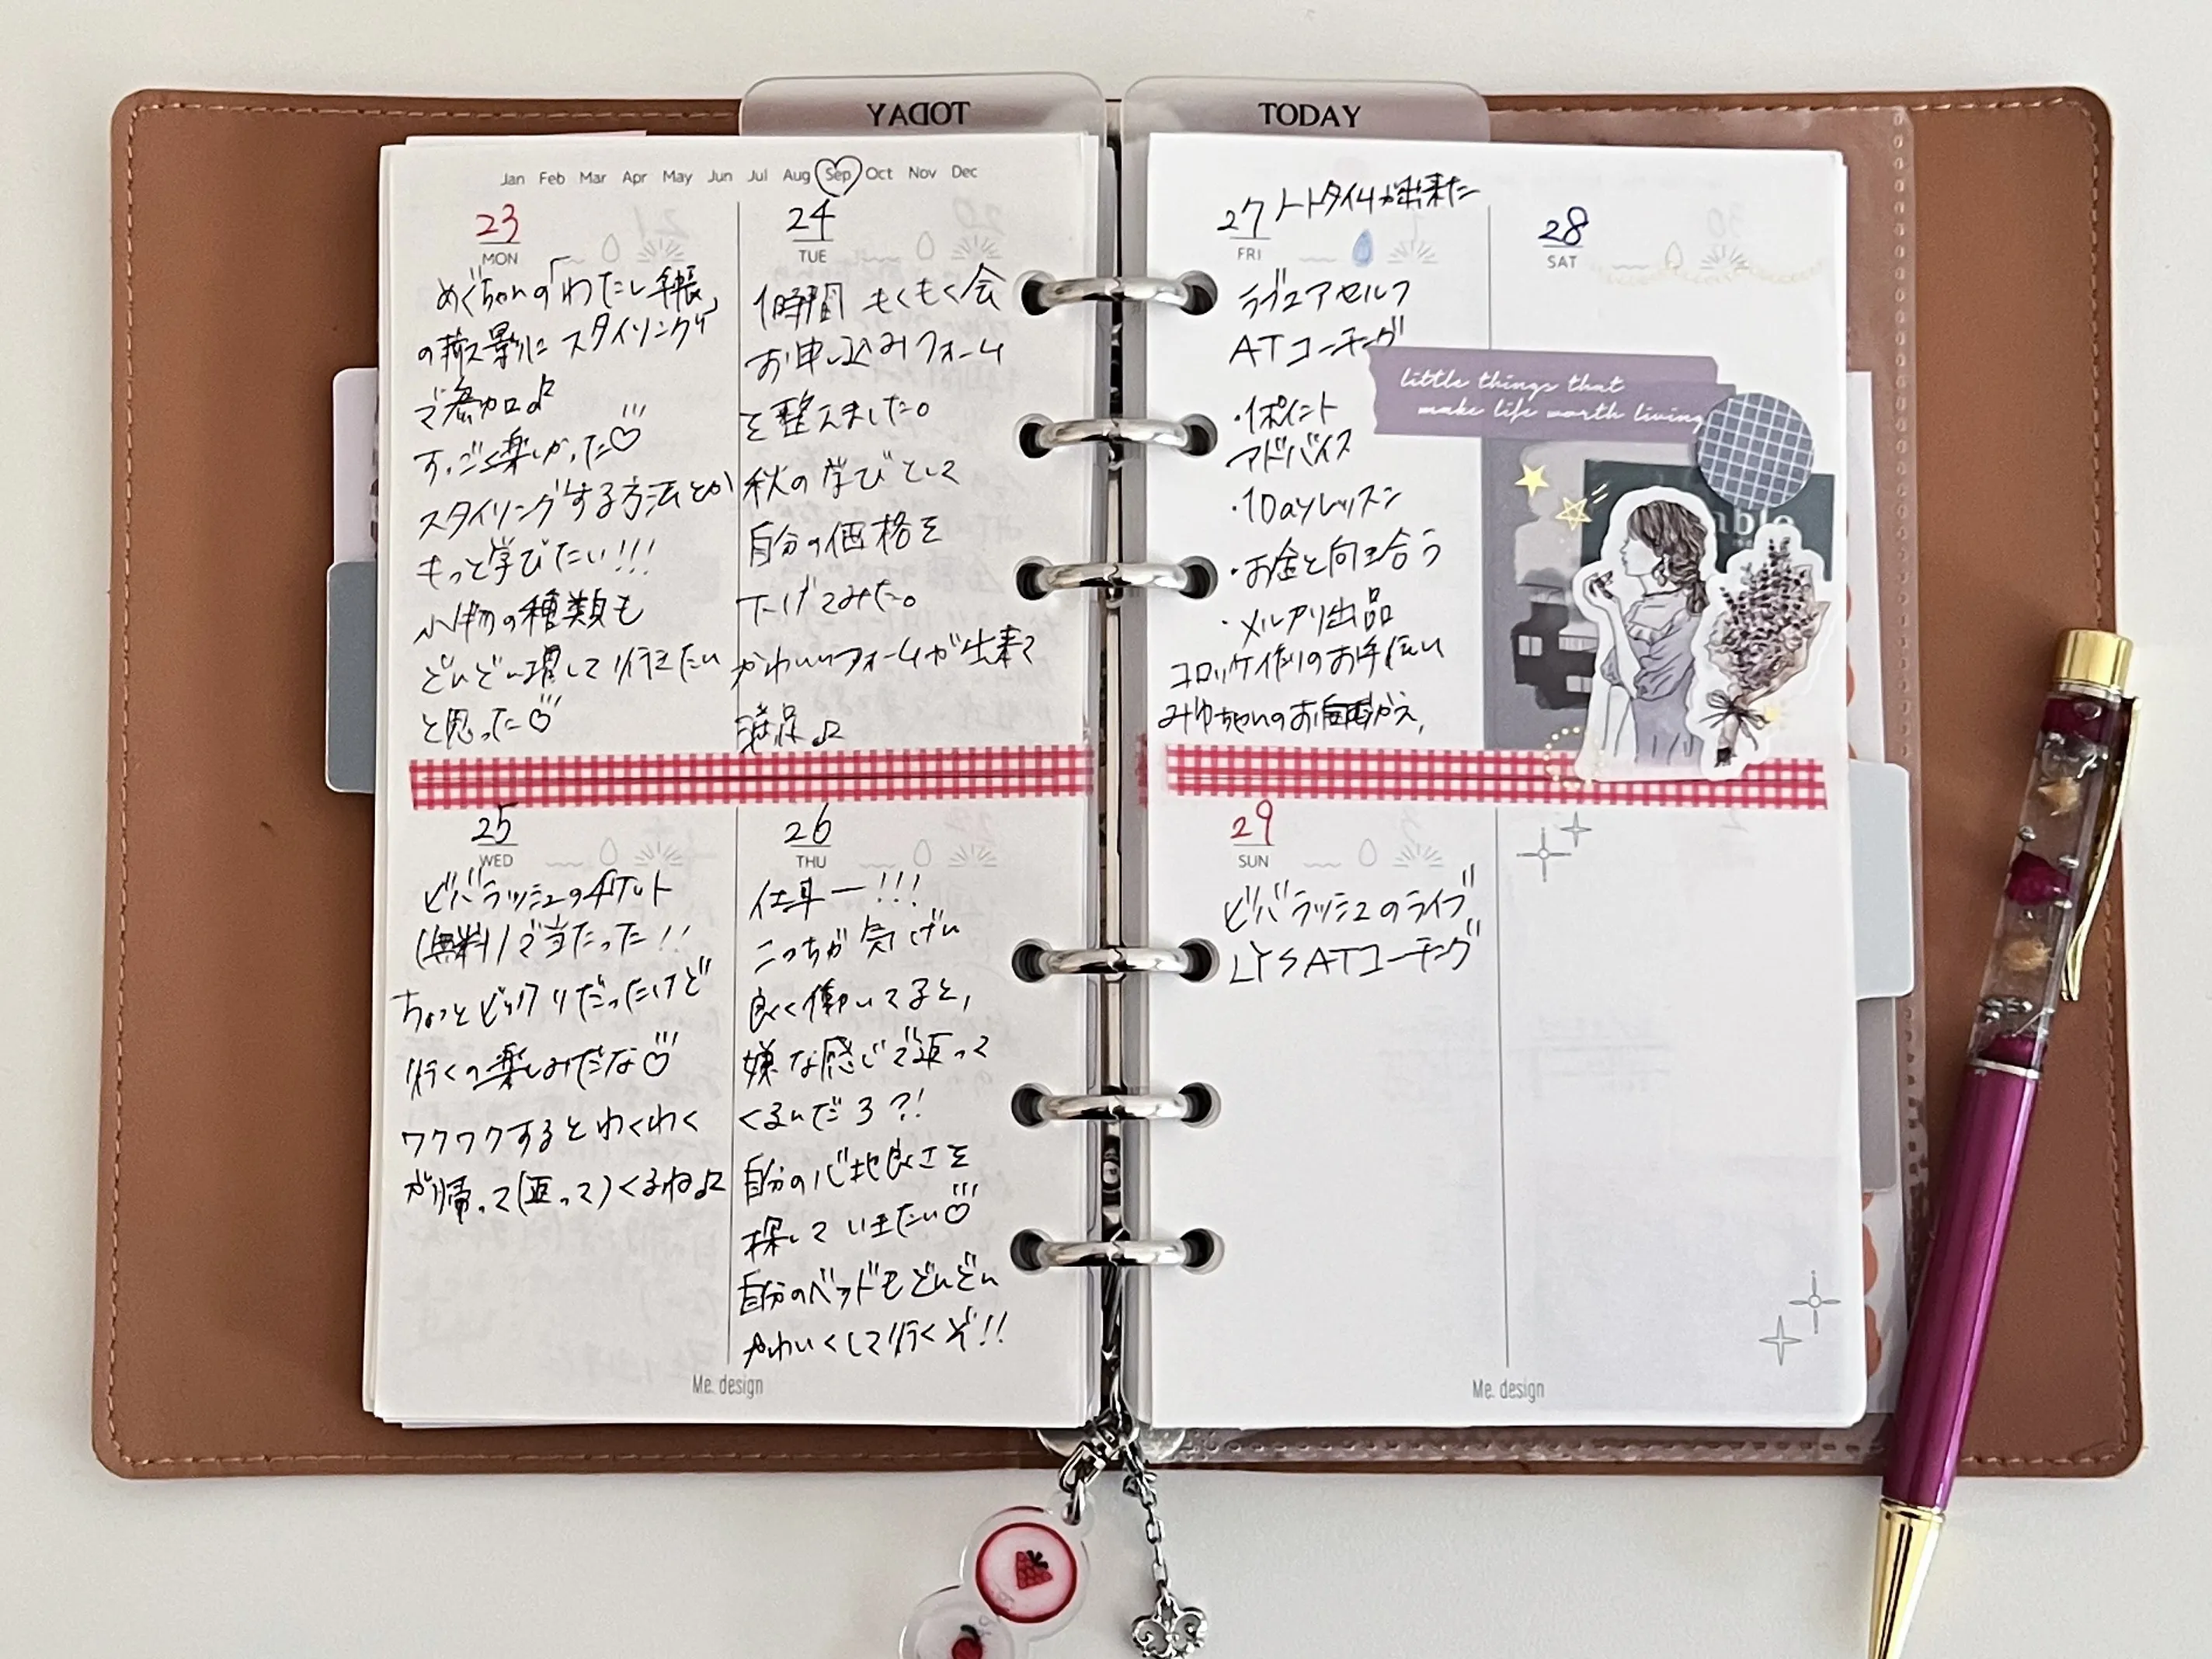 YADOT
TODAY
Jan Feb Mar Apr May Jun Jul Aug Sep Oct Nov Dec
23
MON
めぐちゃんの「わたし手帳」
の撮影に スタイリング
で参加♪
すっごく楽しかった♡
スタイリングする方法とか
もっと学びたい!!!
小物の種類も
どんどん増して行きたい
と思った♡
24
TUE
1時間 もくもく会
お申し込みフォーム
を整えました。
秋の学びとして
自分の価格を
下げてみた。
かわいいフォームが出来て
満足♪
25
WED
ビバラッシュのチケット
(無料)で当たった!!
ちょっとビックリだったけど
行くの楽しみだな♡
ワクワクするとわくわく
が帰って(返って)くるね♪
26
THU
仕事ー!!!
こっちが気げん
良く働いてると、
嫌な感じで返って
くるんだろ?!
自分の心地良さを
探していきたい♡
自分のベッドもどんどん
かわいくして行くぞ!!
Me. design
27 ノートタイムが出来た
FRI
ラヴュアセルフ
ATコーチング
・1ポイント
アドバイス
・1Dayレッスン
・お金と向き合う
・メルカリ出品
コロッケ作りのお手伝い
みゆちゃんのお
28
SAT
little things that
make life worth living
29
SUN
ビバラッシュのライブ
LYS ATコーチング
Me. design